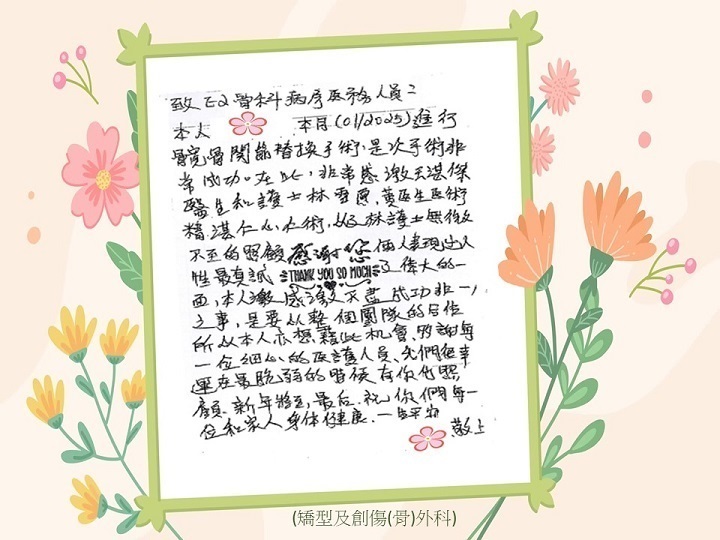 致E2骨科病房医務人員：
本人 本月(01/2025)進行
髖骨関節替換手術，是次手術非
常成功。在此，非常感激天湛傑
醫生和護士林雪，黃医生医術
精湛仁心仁術，以及林護士無微
不至的照顧 感謝您 個人表現出人
性最真誠 THANK YOU SO MUCH 又偉大的一
面，本人激感激不盡，成功非一人
之事，是要从整個團隊的合作
所以本人亦想藉此机會，多謝每
一位細心的医護人員，先們很幸
運在最脆弱的時候有你们照
顧。新年將至，最后，祝你們每一
位和家人身体健康，一生平安
敬上
(矯型及創傷(骨)外科)